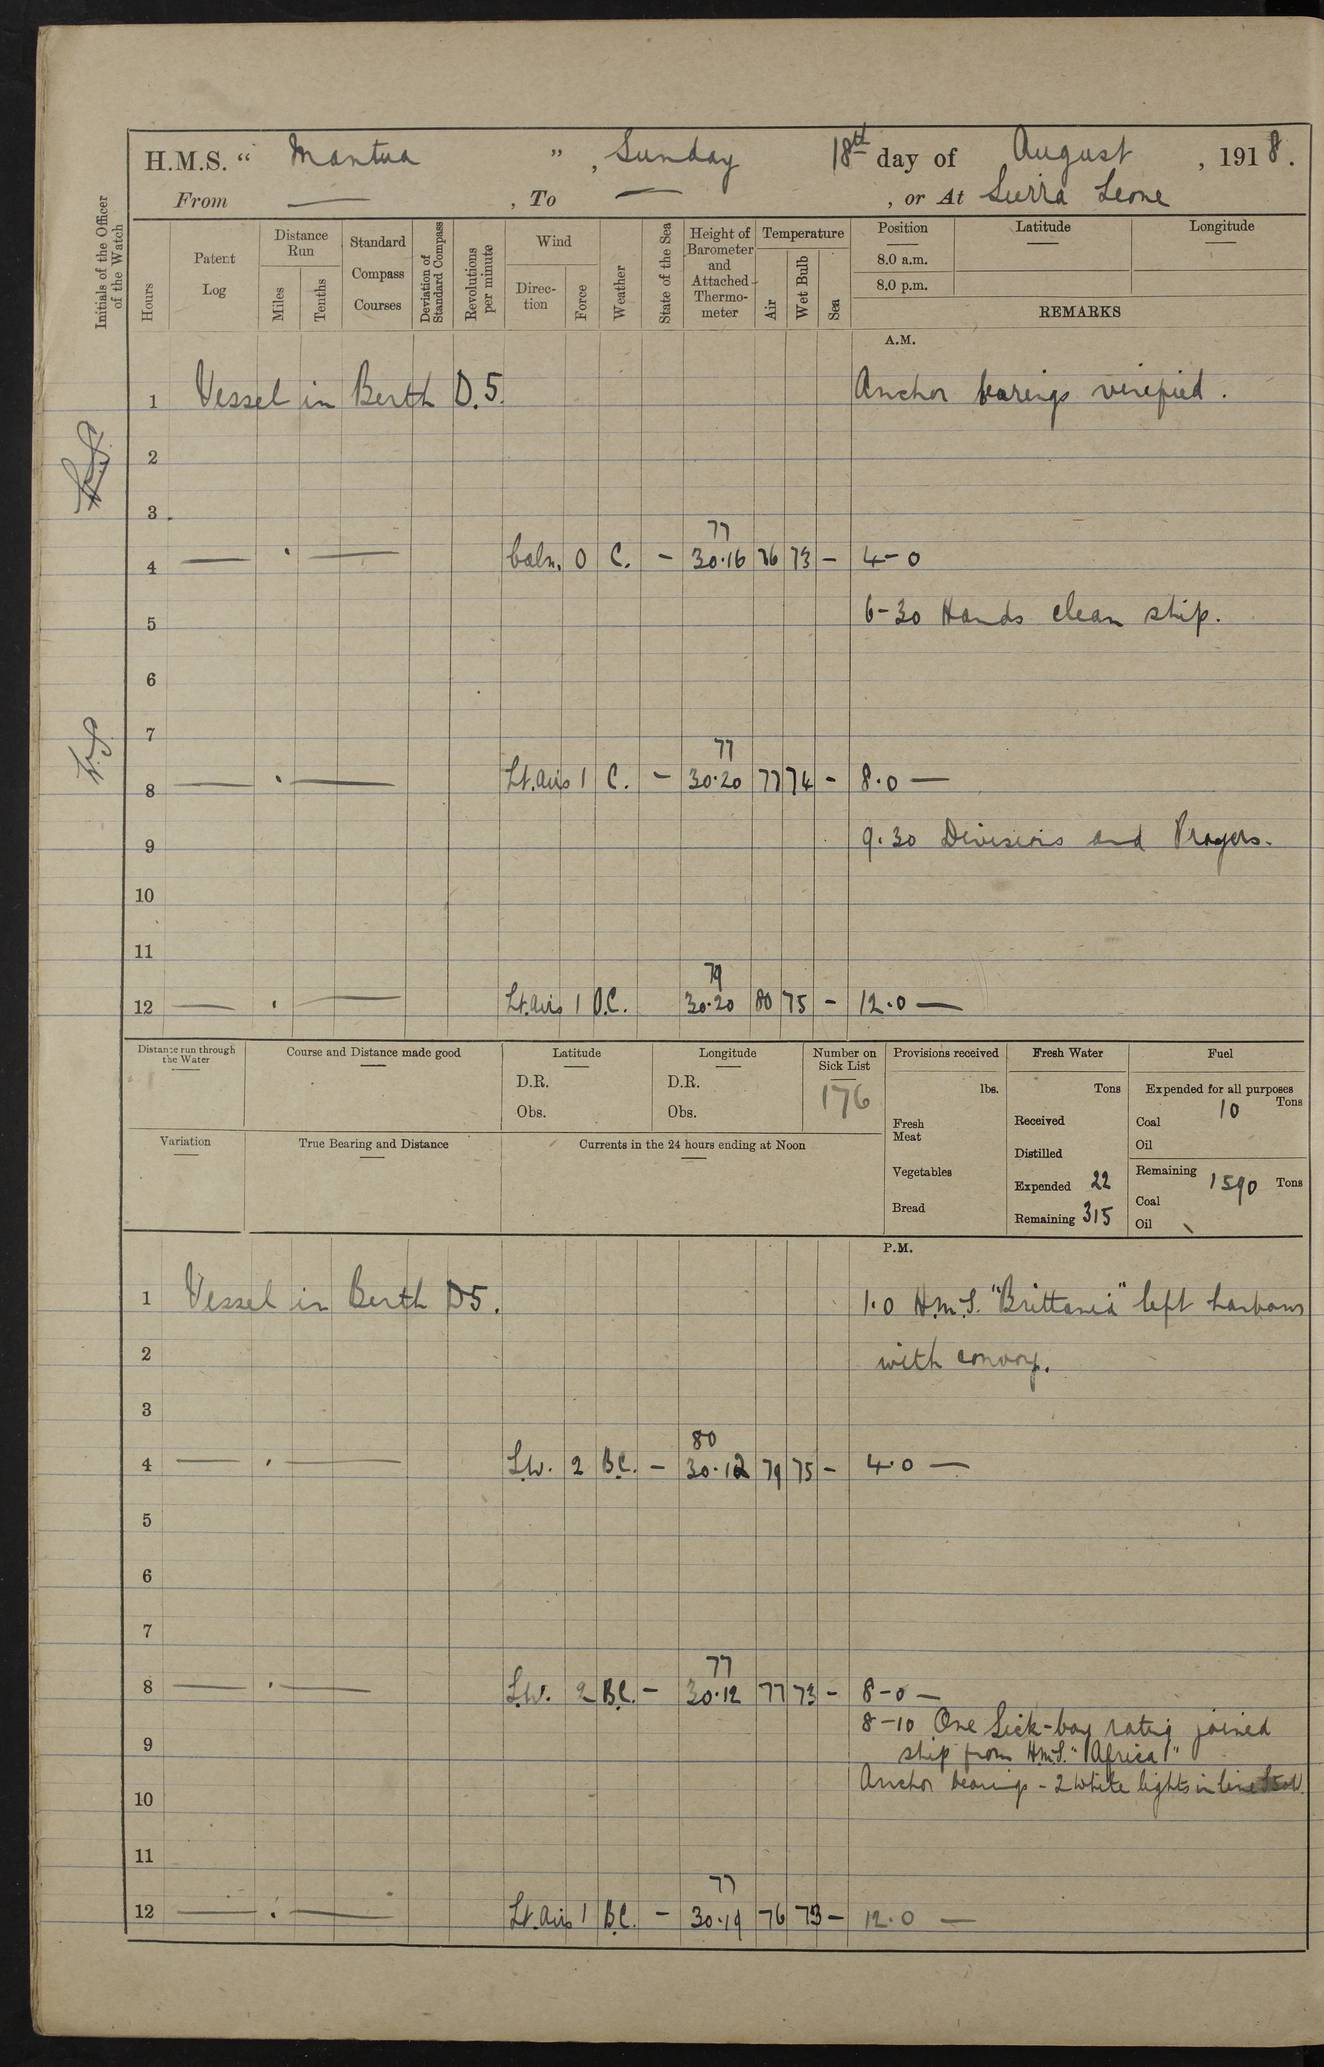 H.M.S. “ Mantua ” , Sunday 18th day of August , 1918.
From — , To — , or At Sierra Leone
Initials of the Officer of the Watch
Hours
Patent Log
Distance Run
Miles
Tenths
Standard Compass Courses
Deviation of Standard Compass
Revolutions per minute
Wind
Direction
Force
Weather
State of the Sea
Height of Barometer and Attached Thermometer
Temperature
Air
Wet Bulb
Sea
Position Latitude Longitude
8.0 a.m.
8.0 p.m.
REMARKS
A.M.
1 Vessel in Berth D.5. Anchor bearings verified.
2
3
77
4 — . — Calm. 0 C. — 30.16 76 73 — 4-0
5 6-30 Hands clean ship.
6
7
77
8 — . — Lt. airs 1 C. — 30.20 77 74 - 8.0 —
9 9.30 Divisions and Prayers.
10
11
79
12 — . — Lt. airs 1 O.C. 30.20 80 75 - 12.0 —
Distance run through the Water
Course and Distance made good
Latitude
D.R.
Obs.
Longitude
D.R.
Obs.
Number on Sick List
176
Provisions received
lbs.
Fresh Meat
Vegetables
Bread
Fresh Water
Tons
Received
Distilled
Expended 22
Remaining 315
Fuel
Expended for all purposes
10 Tons
Coal
Oil
Remaining 1590 Tons
Coal
Oil
Variation
True Bearing and Distance
Currents in the 24 hours ending at Noon
P.M.
1 Vessel in Berth D5. 1.0 H.M.S. "Brittania" left harbour
2 with convoy.
3
80
4 — . — S.W. 2 B.C. — 30.12 79 75 - 4.0 —
5
6
7
77
8 — . — S.W. 2 B.C. — 30.12 77 73 - 8-0 —
8-10 One Sick-bay rating joined
9 ship from H.M.S. "Africa"
Anchor bearings - 2 white lights in line
10
11
77
12 — . — Lt. airs 1 B.C. — 30.19 76 73 — 12.0 —